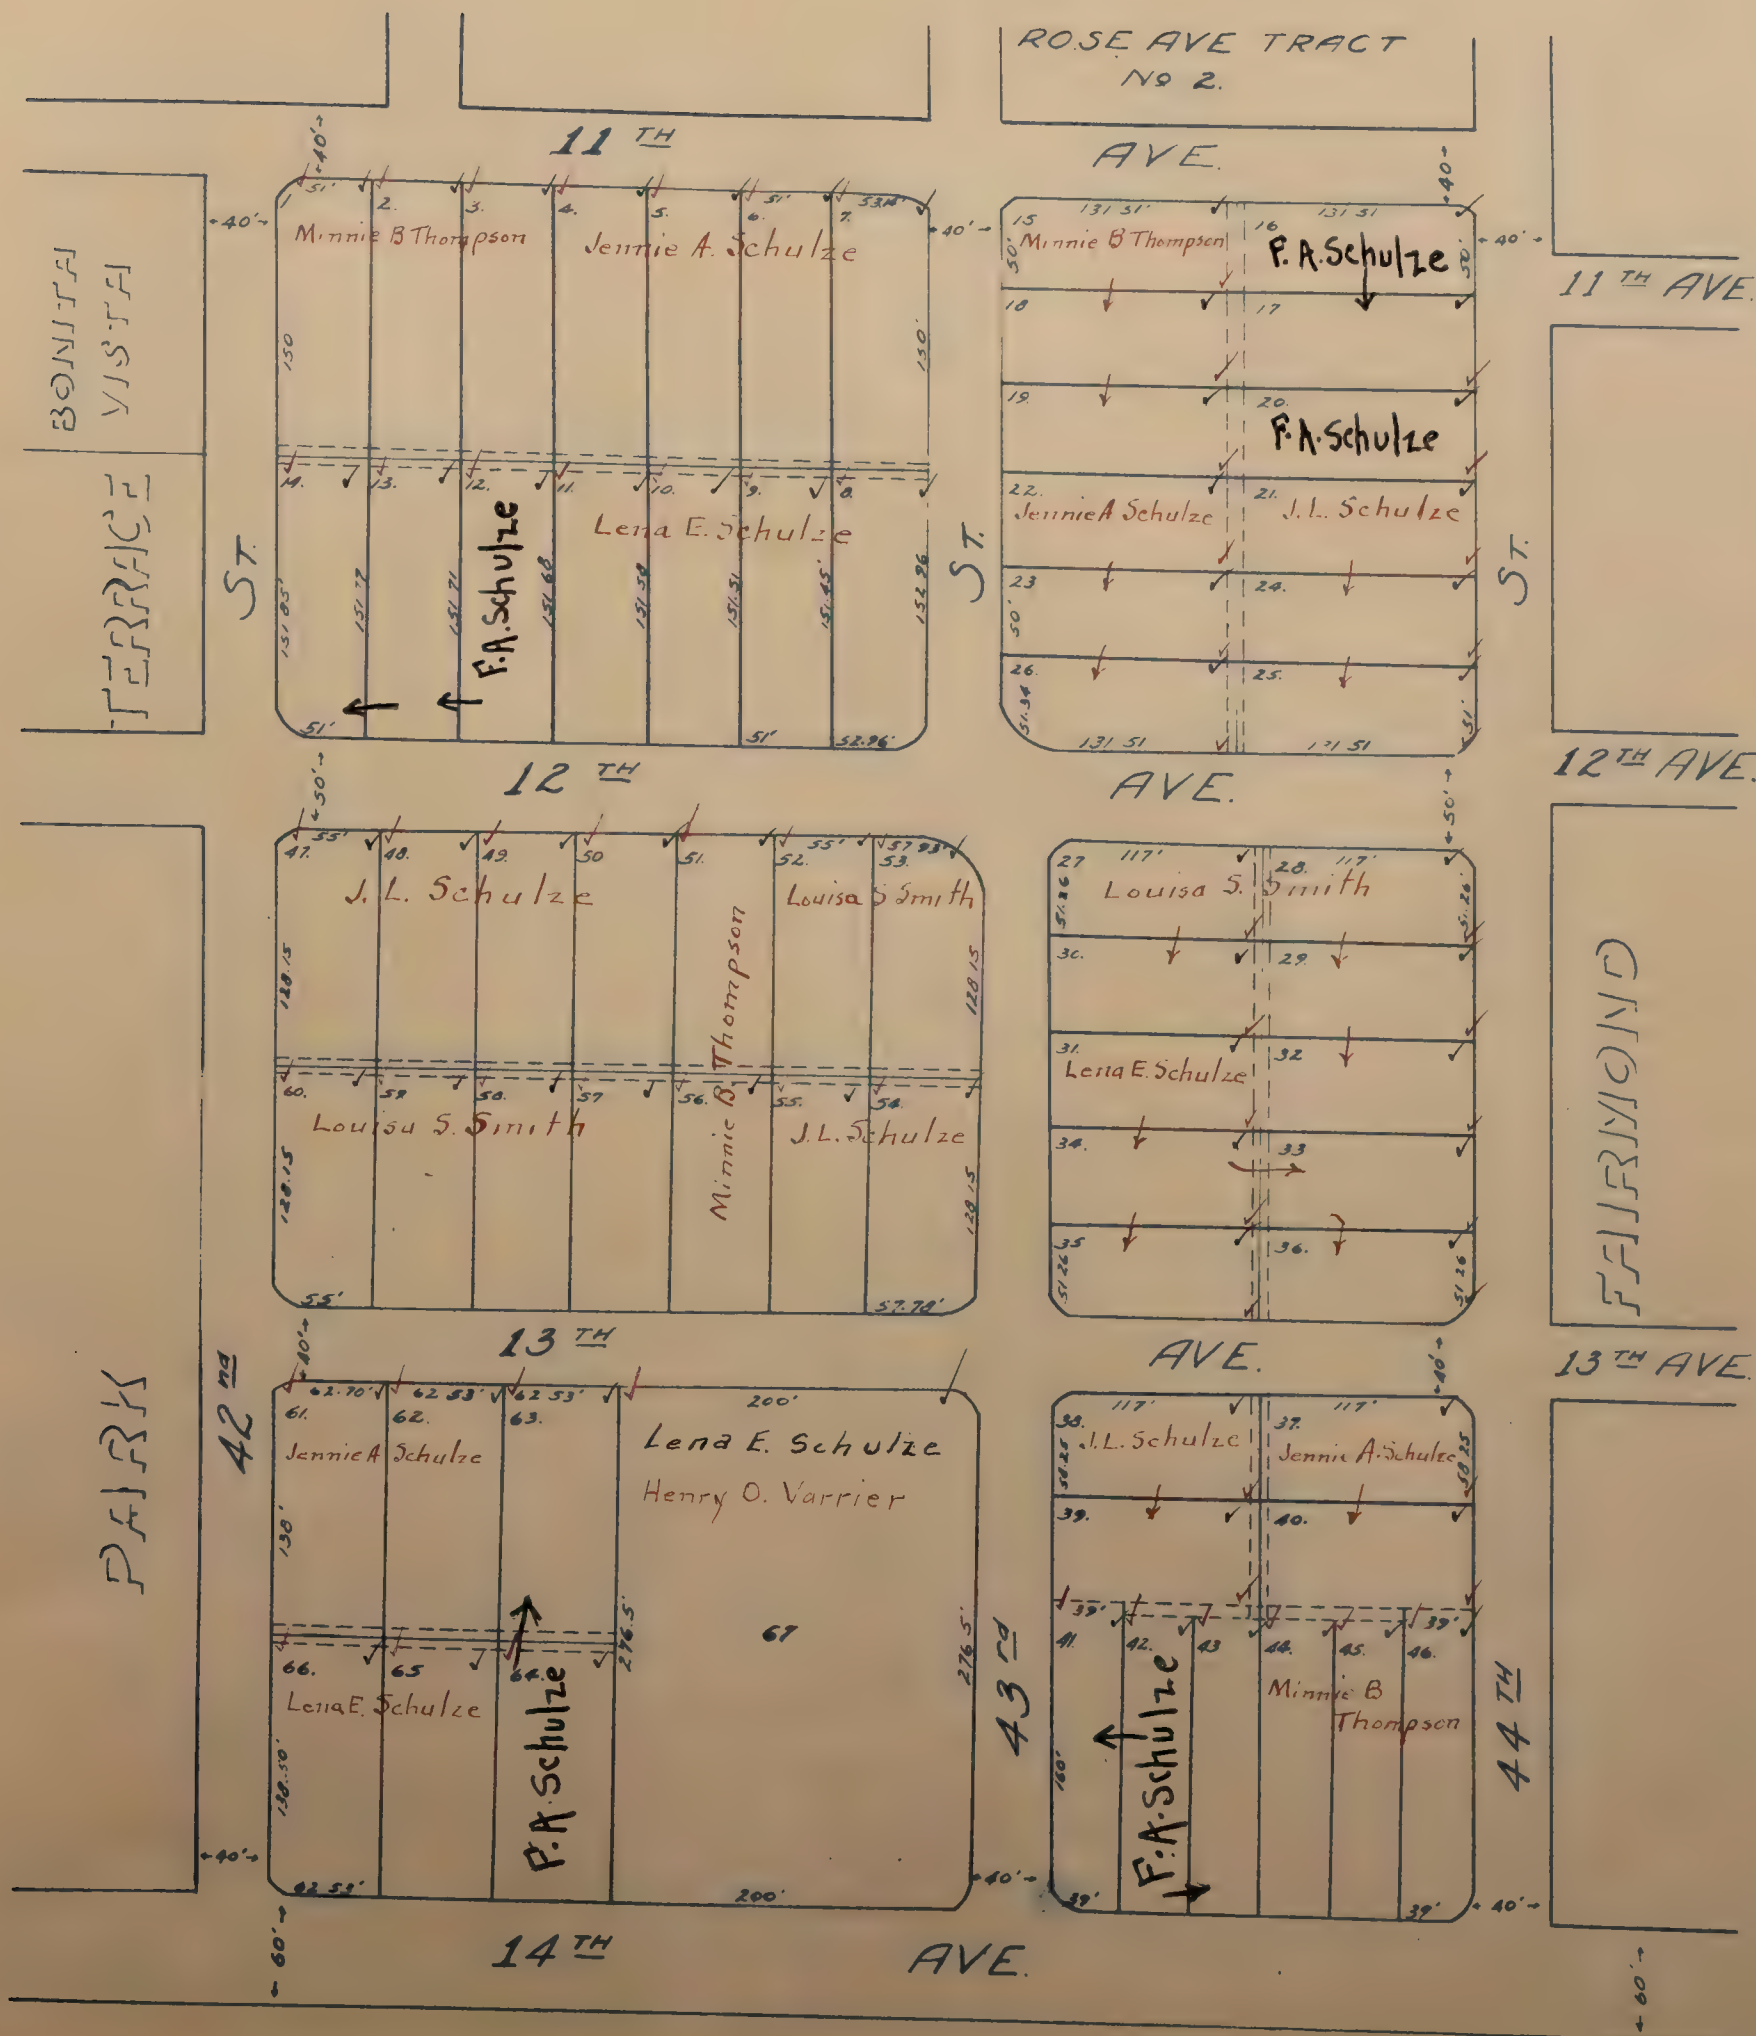 ROSE AVE TRACT
Nº 2.
11 TH AVE.
40'
40'
BONITA
VISTA
TERRACE
PARK
FAIRMOND
11 TH AVE.
12 TH AVE.
13 TH AVE.
1 2. 3. 4. 5. 6. 7.
51' 51' 53.15'
40' 40' 40'
Minnie B Thompson
Jennie A. Schulze
150 150'
14. 13. 12. 11. 10. 9. 8.
F.A.Schulze
Lena E. Schulze
151.85' 151.77 151.71 151.68 151.58 151.51 151.45' 152.96
51' 51' 52.96'
15 131 51' 16 131 51
50' 50'
Minnie B Thompson
F.A.Schulze
18 17
19. 20.
F.A.Schulze
22. 21.
Jennie A Schulze
J.L. Schulze
23 24.
50'
26. 25.
51.34 51'
131 51 131 51
ST.
ST.
ST.
12 TH AVE.
50' 50'
47. 48. 49. 50 51. 52. 53.
55' 55' 57 93'
J. L. Schulze
Louisa S Smith
Minnie B. Thompson
128.15 128 15
60. 59 58. 57 56. 55. 54.
Louisa S. Smith
J.L. Schulze
128.15 128 15
55' 57.78'
27 117' 28. 117'
51.26 51.26'
Louisa S. Smith
30. 29.
31. 32
Lena E. Schulze
34. 33
35 36.
51 26 51 26
13 TH AVE.
40' 40'
61. 62. 63.
62.70' 62 53' 62 53' 200'
Jennie A Schulze
Lena E. Schulze
Henry O. Varrier
138' 276.5' 276 5' 67
66. 65 64.
Lena E. Schulze
F.A.Schulze
138.50'
62 53' 200'
38. 117' 37. 117'
58.25 58 25
J.L. Schulze
Jennie A. Schulze
39. 40.
39' 39'
41. 42. 43 44. 45. 46.
F.A.Schulze
Minnie B
Thompson
160'
39' 39'
42 nd
43 rd
44 TH
40' 40' 40'
14 TH AVE.
60' 60'